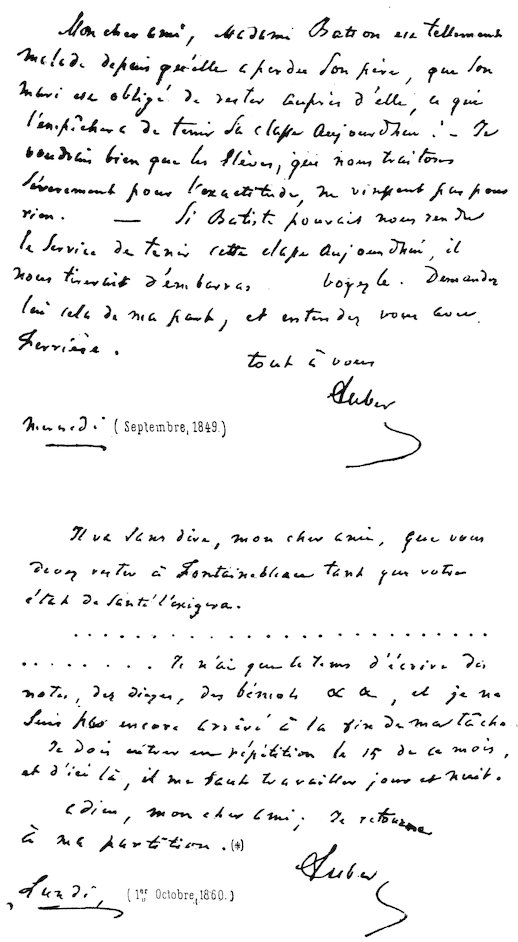 Mon cher ami, Madame Batton est tellement
malade depuis qu'elle a perdu son père, que son
mari est obligé de rester auprès d'elle, ce qui
l'empêchera de tenir sa classe aujourdhui : - Je
voudrais bien que les élèves, que nous traitons
sévèrement pour l'exactitude, ne vinssent pas pour
rien. — Si Batiste pouvait nous rendre
le service de tenir cette classe aujourdhui, il
nous tirerait d'embarras. voyez le. Demandez
lui cela de ma part, et entendez vous avec
Ferrière.
tout à vous
Auber
(Septembre, 1849.)
Il va sans dire, mon cher ami, que vous
devez rester à Fontainebleau tant que votre
état de santé l'exigera.
. . . . . . . . . . . . . . . . . . . . . . . . . . .
. . . . . . . . Je n'ai que le tems d'écrire des
notes, des dièzes, des bémols &a &a, et je ne
suis pas encore arrivé à la fin de ma tâche.
Je dois entrer en répétition le 15 de ce mois,
et d'ici là, il me faut travailler jour et nuit.
adieu, mon cher ami; Je retourne
à ma partition. (4)
Auber
Lundi, (1er Octobre, 1860.)